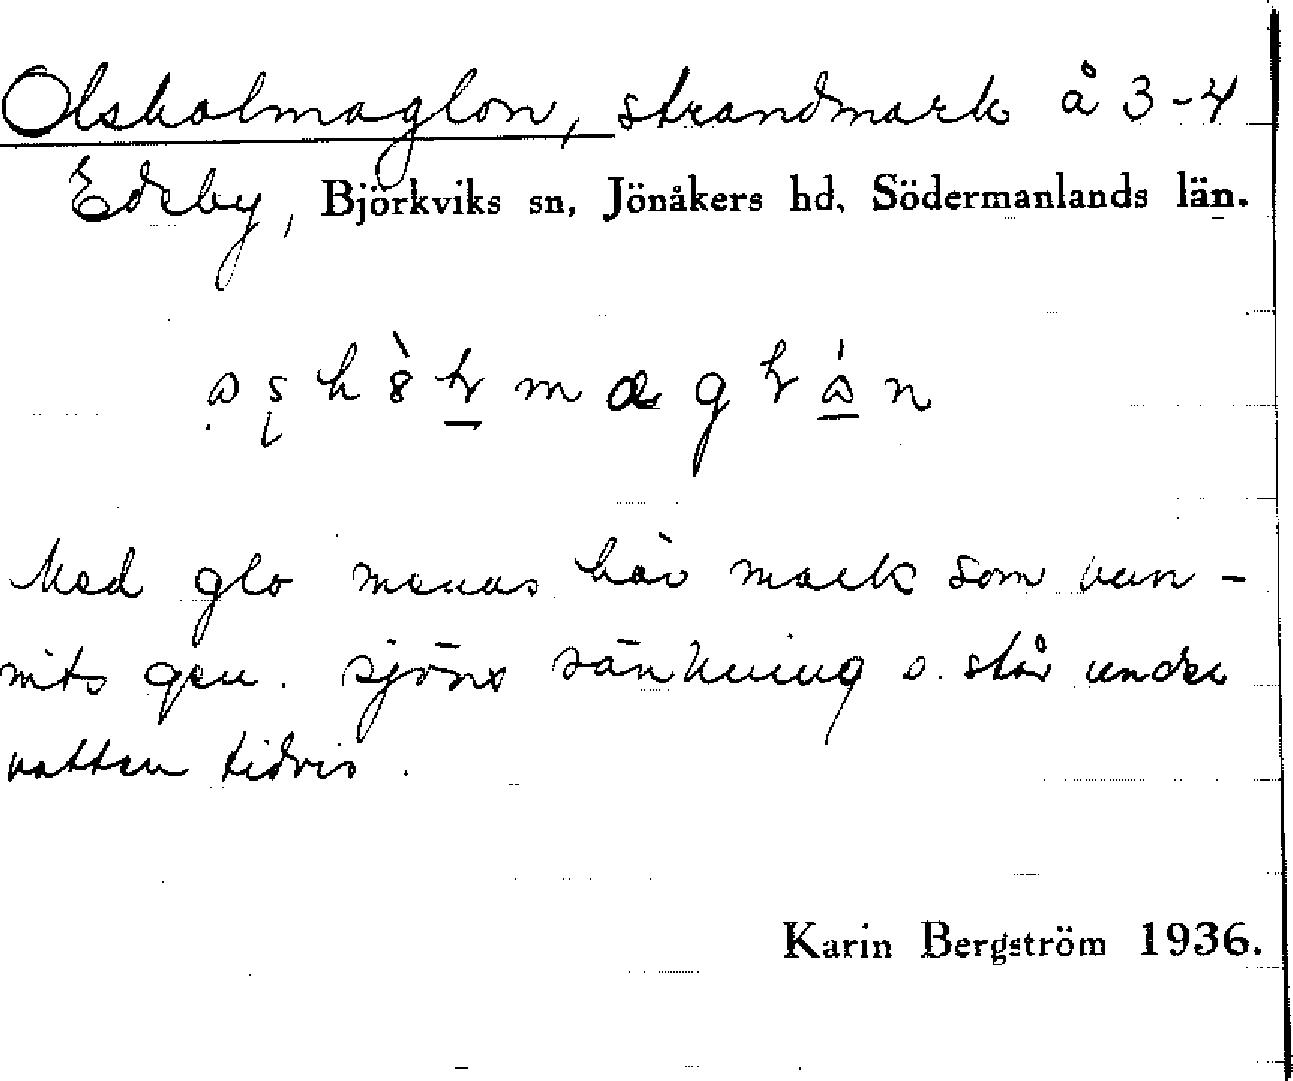 Olsholmaglon, strandmark å 3-4
Edeby, Björkviks sn, Jönåkers hd, Södermanlands län.
Med glo menas här mark som vun-
nits gen. sjöns sänkning o. står under
vatten tidvis.
Karin Bergström 1936.